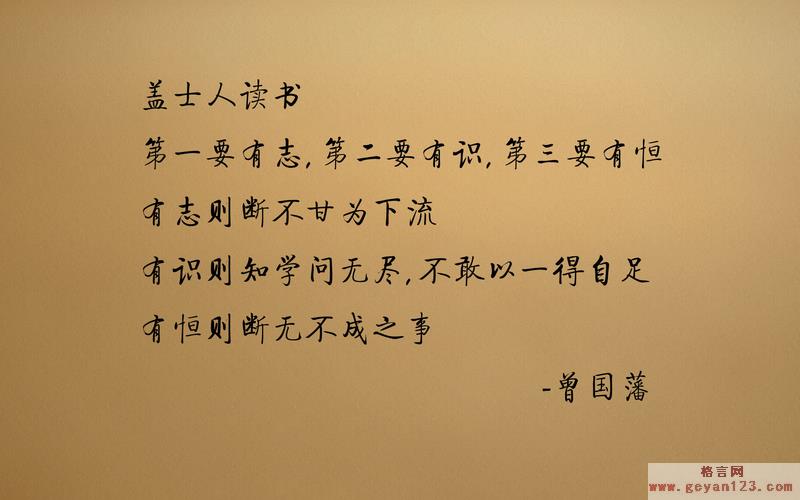 盖士人读书
第一要有志,第二要有识,第三要有恒
有志则断不甘为下流
有识则知学问无尽,不敢以一得自足
有恒则断无不成之事
-曾国藩
格言网
www.geyan123.com